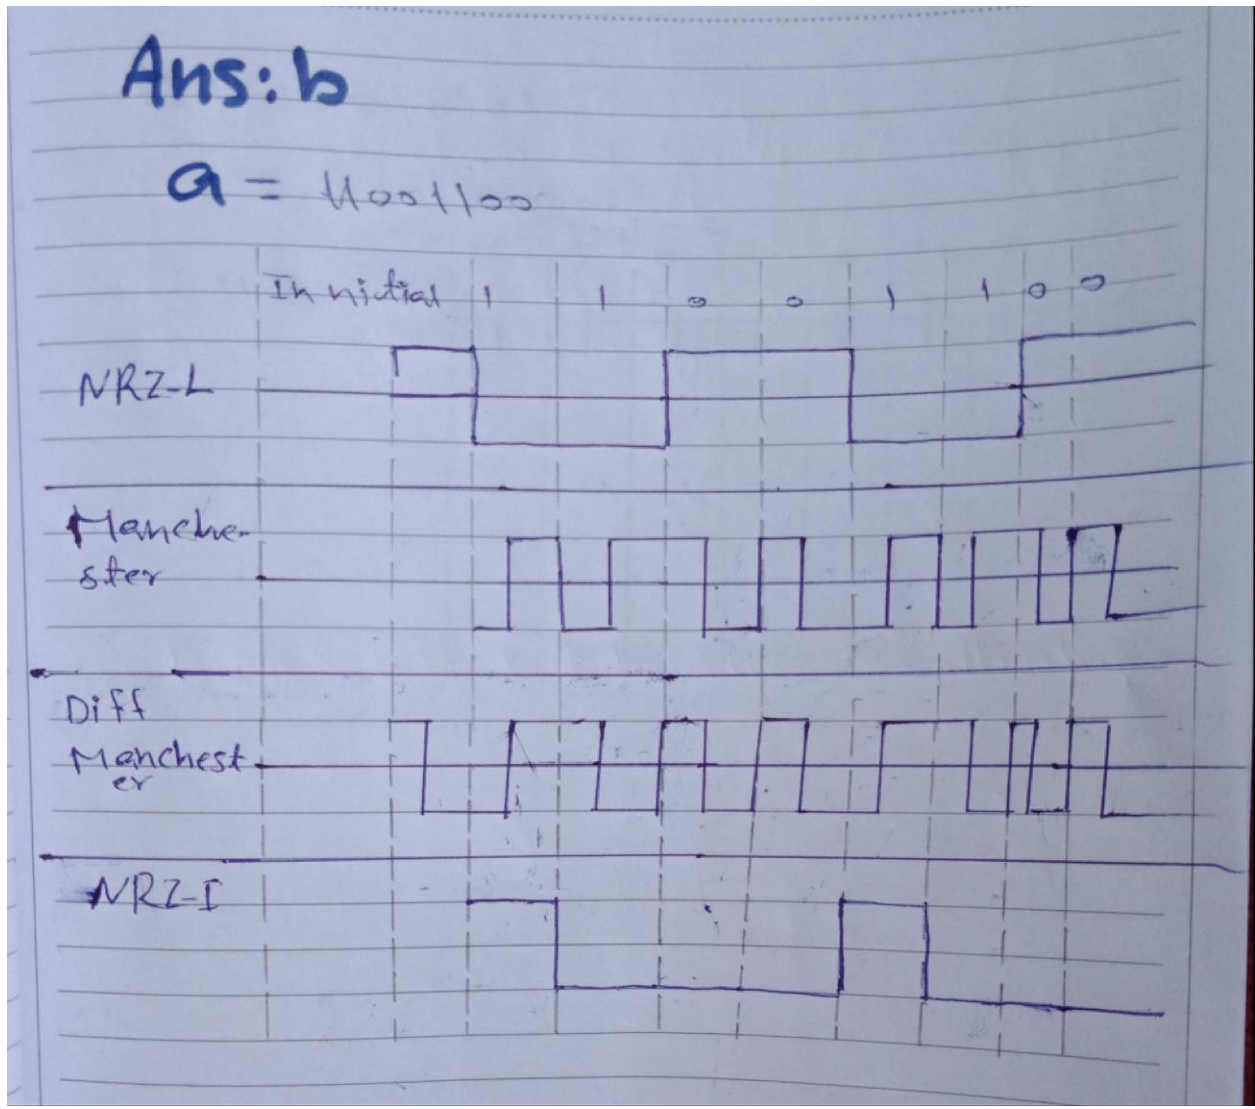 Ans: b
a = 11001100
Innitial 1 1 0 0 1 1 0 0
NRZ-L
Manche-
ster
Diff
Manchest
er
NRZ-I